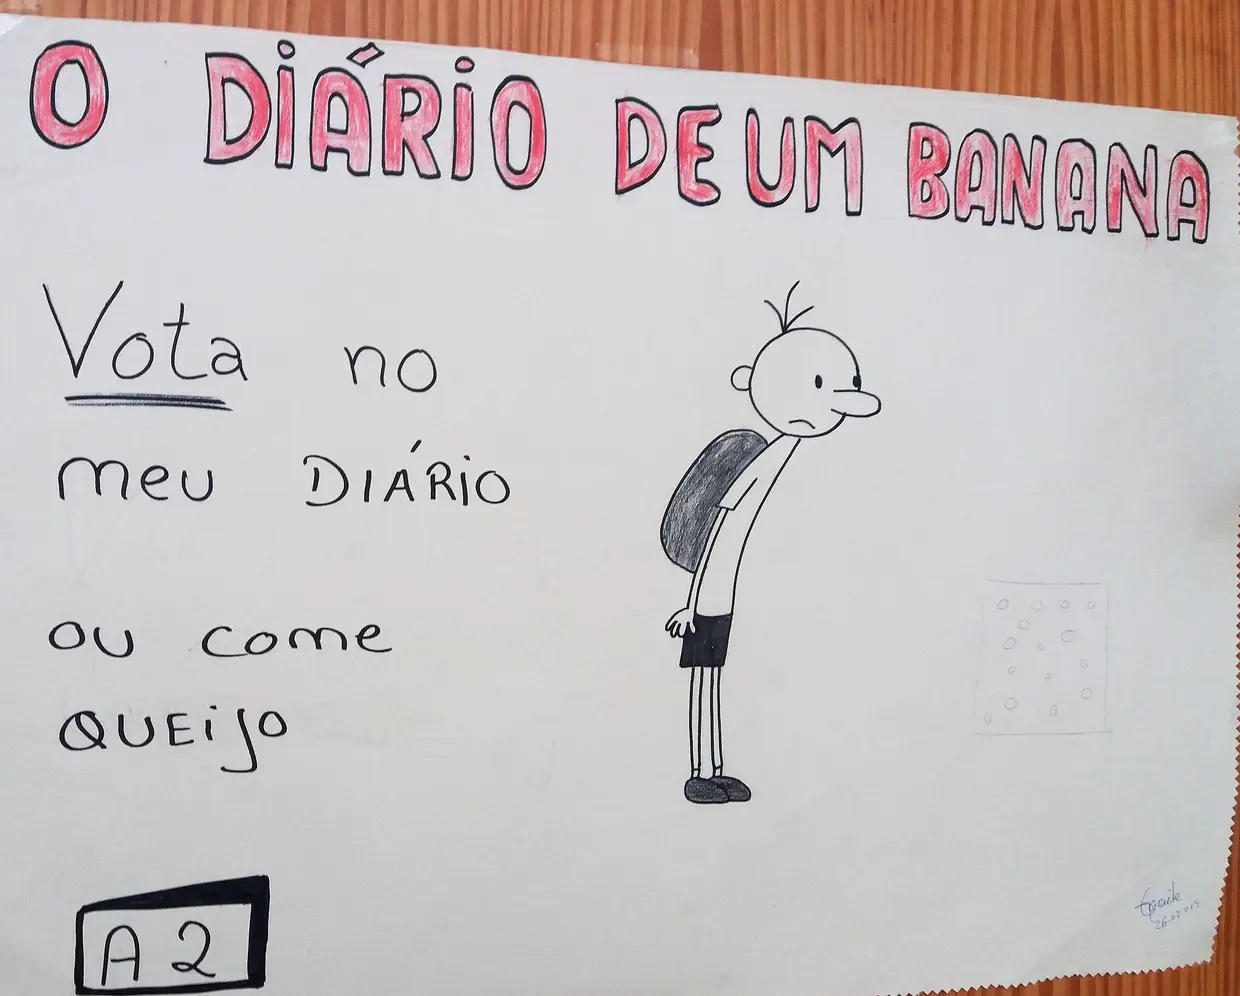 O DIÁRIO DE UM BANANA
Vota no
meu DIÁRIO
ou come
QUEIJO
A2
26.02.019